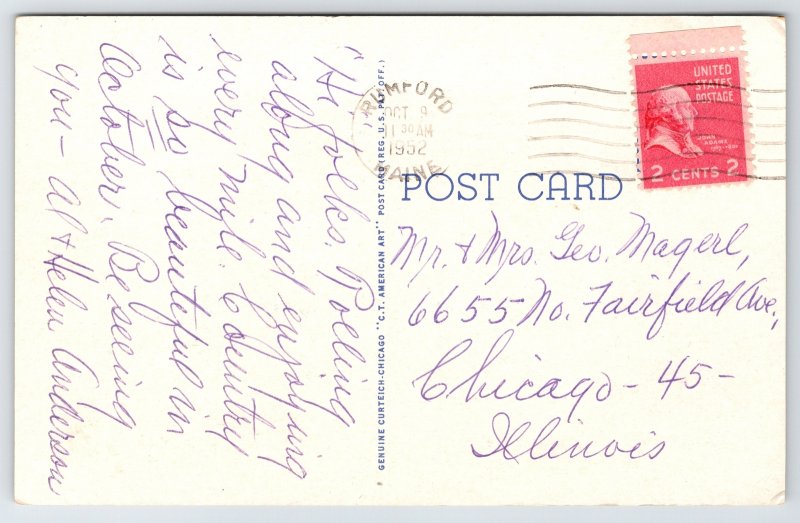 "Hi folks. Rolling
along and enjoying
every mile. Country
is so beautiful in
October. Be seeing
you - Al + Helen Anderson
GENUINE CURTEICH-CHICAGO "C.T. AMERICAN ART" POST CARD (REG. U.S. PAT. OFF.)
RUMFORD
OCT 9
AM
1952
MAINE
UNITED
STATES
POSTAGE
JOHN
ADAMS
2 CENTS 2
POST CARD
Mr. + Mrs. Geo. Magerl,
6655 No. Fairfield Ave.,
Chicago - 45 -
Illinois